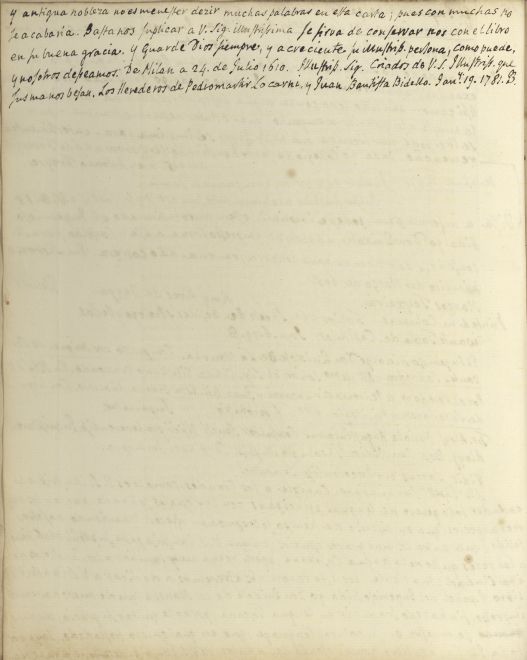 y antigua nobleza no es menester dezir muchas palabras en esta carta; pues con muchas no
se acabaria. Basta nos suplicar a V. Sig. illustrissima se sirva de conservar nos con el libro
en su buena gracia. y guarde Dios siempre, y acreciente su illustris. persona, como puede,
y nosotros deseamos. De Milan a 24. de Julio 1610. Illustriss. Sig. Criados de V.S. Illustriss. que
sus manos besan. Los Herederos de Pedromartir Locarni, y Juan Bautista Bidello. Janry. 19. 1781.